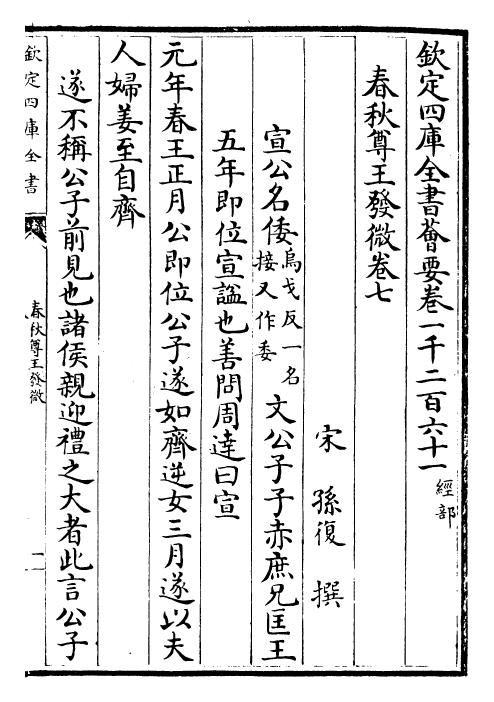 欽定四庫全書薈要卷一千二百六十一 經部
春秋尊王發微卷七
宋 孫復 撰
宣公名倭烏戈反一名接又作委文公子子赤庶兄匡王
五年即位宣諡也善問周達曰宣
元年春王正月公即位公子遂如齊逆女三月遂以夫
人婦姜至自齊
遂不稱公子前見也諸侯親迎禮之大者此言公子
欽定四庫全書
春秋尊王發微
二